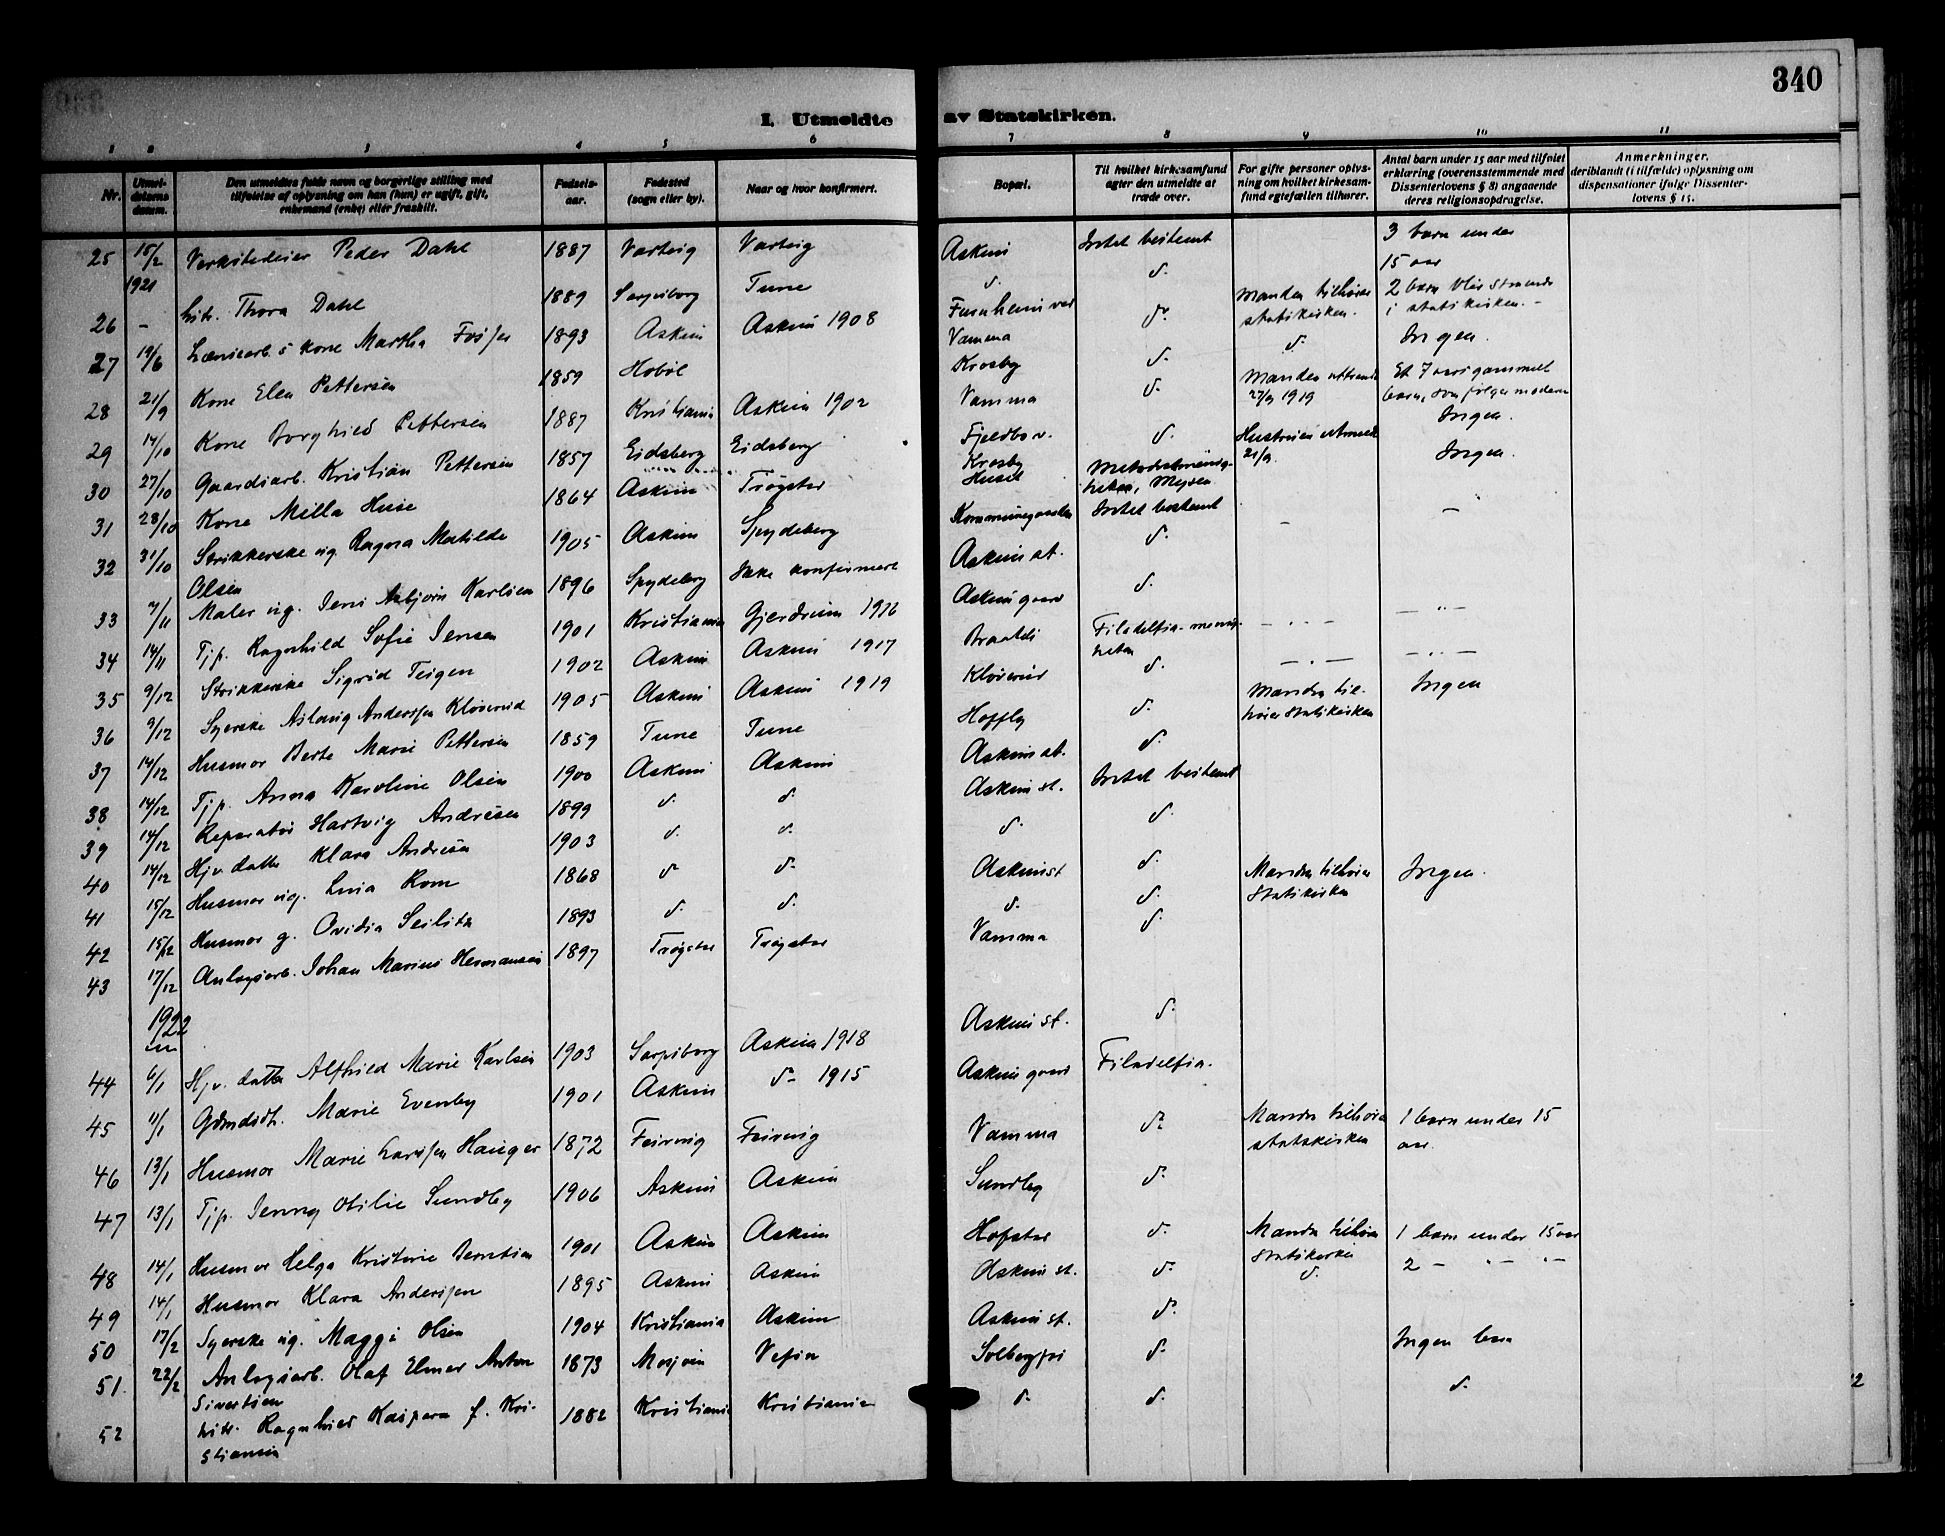 340
I. Utmeldte av Statskirken.
1 2 3 4 5 6 7 8 9 10 11
Nr. Utmeldelsens datum. Den utmeldtes fulde navn og borgerlige stilling med tilføielse af oplysning om han (hun) er ugift, gift, enkemand (enke) eller fraskilt. Fødselsaar. Fødested (sogn eller by). Naar og hvor konfirmert. Bopæl. Til hvilket kirkesamfund agter den utmeldte at træde over. For gifte personer oplysning om hvilket kirkesamfund egtefællen tilhører. Antal barn under 15 aar med tilføiet erklæring (overensstemmende med Dissenterlovens § 8) angaaende deres religionsopdragelse. Anmerkninger, deriblandt (i tilfælde) oplysning om dispensationer ifølge Dissenterlovens § 15.
25 15/2 1921 Verkstedeier Peder Dahl 1887 Varteig Varteig Askim Intet bestemt 3 barn under 15 aar
26 - Hustr. Thora Dahl 1889 Sarpsborg Tune d. d.
27 19/6 kone Martha 1893 Askim Askim 1908 Furuheim ved Vamma d. Manden tilhører statskirken. 2 barn blir staaende i statskirken. -
28 21/9 Kone Elen Pettersen 1859 Hobøl Krosby d. d. Ingen.
29 14/10 Kone Borghild Pettersen 1887 Kristiania Askim 1902 Vamma d. Manden uttraadt 27/9 1919 Et 7 aars gammelt barn, som følger moderen
30 27/10 Gaardsarb. Kristian Pettersen 1857 Eidsberg Eidsberg Krosby d. Hustruen utmeldt 21/9. Ingen.
31 28/10 Kone Milla Huse 1864 Askim Trøgstad Metodistmenigheten, Mysen Ingen.
32 31/10 Strikkerske ug. Ragna Matilde Olsen 1905 Askim Spydeberg Kommunegaarden Intet bestemt - -
33 7/11 Maler ug. Jens Asbjørn Karlsen 1896 Spydeberg Ikke konfirmert Askim st. d.
34 14/11 Tjp. Ragnhild Sofie Jensen 1901 Kristiania Gjerdrum 1916 Askim gaard d.
35 9/12 Strikkerske Sigrid Teigen 1902 Askim Askim 1917 Braatli Filadelfia-menigheten - " - - " -
36 9/12 Syerske Aslaug Andersen Kløserud 1905 Askim Askim 1919 Kløserud d. - " - - " -
37 14/12 Husmor Berte Marie Pettersen 1859 Tune Tune d. Manden tilhører statskirken Ingen
38 14/12 Tjp. Anna Karoline Olsen 1900 Askim Askim Askim st. d.
39 14/12 Reparatør Hartvig Andresen 1899 d. d. Askim st. Intet bestemt
40 14/12 Hjv. datter Klara Andresen 1903 d. d. d. d.
41 15/12 Husmor ug. Rom 1868 d. d. Askim st d.
42 15/12 Husmor g. Ovidia 1893 d. d. d. d. Manden tilhører Statskirken Ingen.
43 17/12 Anlægsarb. Johan Marius Hermansen 1897 Trøgstad Trøgstad Vamma d.
1922
44 6/1 Hjv. datter Alfhild Marie Karlsen 1903 Sarpsborg Askim 1918 Askim st. d.
45 11/1 Gdmdatt. Marie Evenby 1901 Askim d- 1915 Askim gaard Filadelfia.
46 13/1 Husmor Marie Larsen Hauger 1872 Feiring Feiring Vamma d. Manden tilhører statskirken 1 barn under 15 aar.
47 13/1 Tjp. Jenny Otilie Sundby 1906 Askim Askim Sundby d.
48 14/1 Husmor Helga Kristine Berntsen 1901 Askim Askim Hofstad d. Manden tilhører Statskirken 1 barn under 15 aar
49 14/1 Husmor Klara Andersen 1895 Askim Askim Askim st. d. d. 2 - " - " -
50 17/2 Syerske ug. Maggi Olsen 1904 Kristiania Askim Askim st. d.
51. 22/2 Anlægsarb. Olaf Elmer Anton Sivertsen 1873 Mosjøen Vefsn d. Ingen barn
52 Hustr. Ragnhild Kaspara f. Kristiansen 1882 Kristiania Kristiania d. d. d.